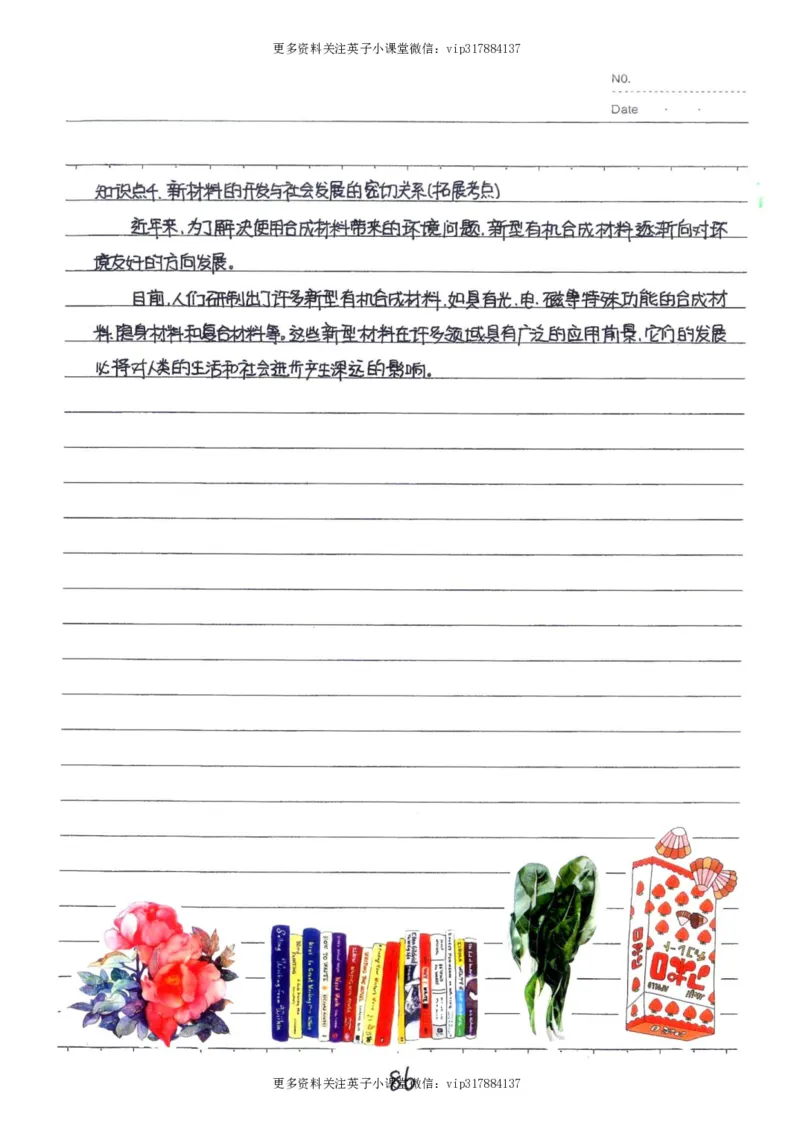 更多资料关注英子小课堂微信：vip317884137
NO.
Date
知识点4. 新材料的开发与社会发展的密切关系(拓展考点)
近年来,为了解决使用合成材料带来的环境问题,新型有机合成材料逐渐向对环
境友好的方向发展。
目前,人们研制出了许多新型有机合成材料,如具有光、电、磁等特殊功能的合成材
料,隐身材料和复合材料等。这些新型材料在许多领域具有广泛的应用前景,它们的发展
必将对人类的生活和社会进步产生深远的影响。
86
更多资料关注英子小课堂微信：vip317884137